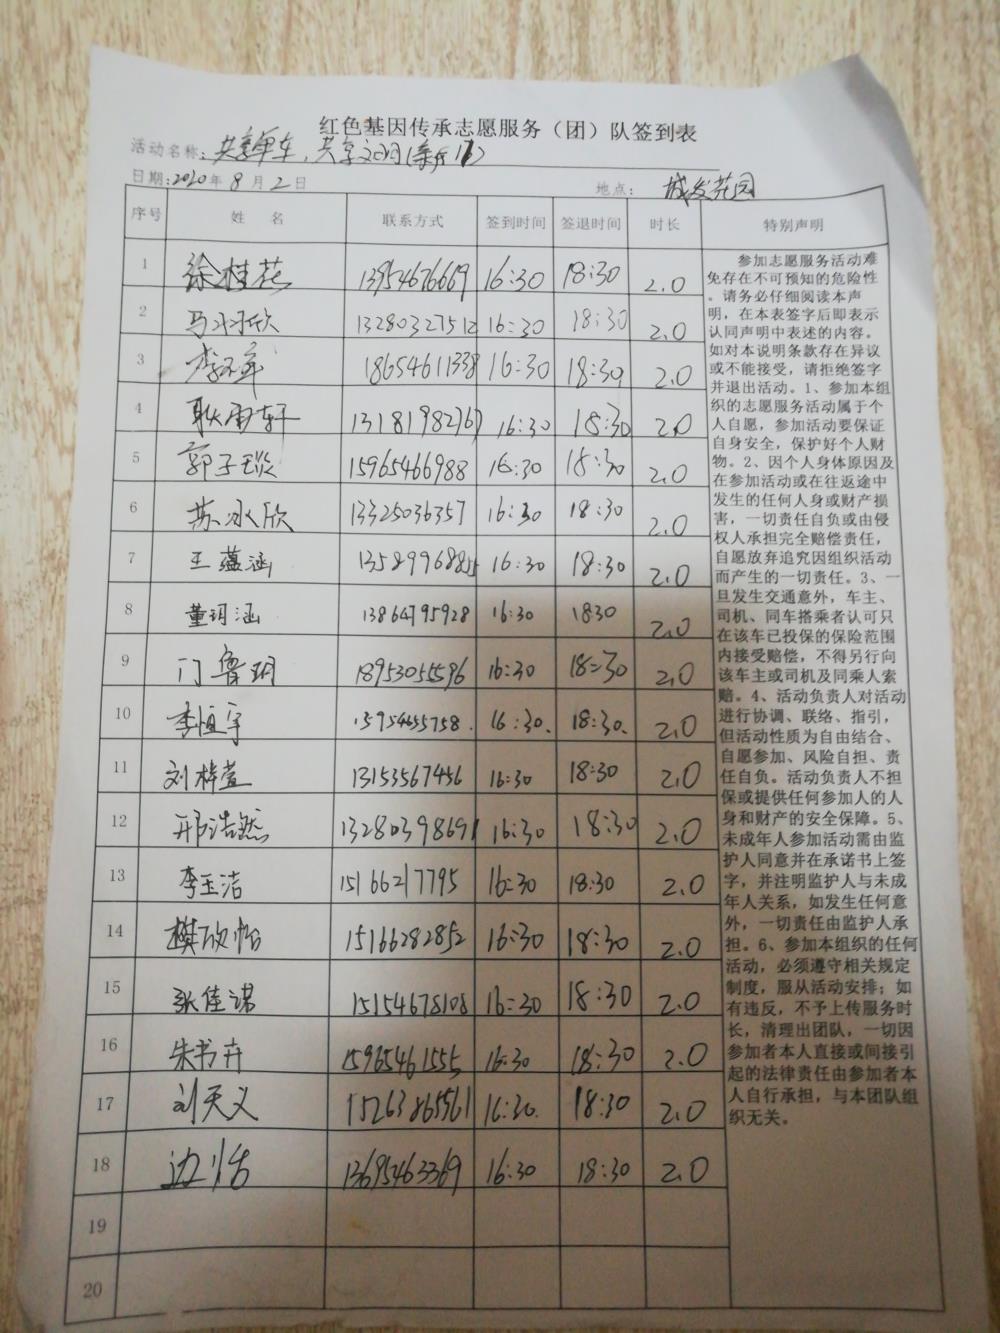 红色基因传承志愿服务（团）队签到表
活动名称：共享单车，共享文明
日期：2020年8月2日 地点：城发花园
序号 姓名 联系方式 签到时间 签退时间 时长 特别声明
1 徐桂花 13954676669 16:30 18:30 2.0
2 马 欣 13280327512 16:30 18:30 2.0
3 李 18654611338 16:30 18:30 2.0
4 耿雨轩 13181982767 16:30 18:30 2.0
5 郭子琰 15965466988 16:30 18:30 2.0
6 苏冰欣 13325036357 16:30 18:30 2.0
7 王蕴涵 16:30 18:30 2.0
8 董玥涵 13864795928 16:30 1830 2.0
9 门鲁玥 18953055596 16:30 18:30 2.0
10 李恒宇 15954655758. 16:30. 18:30. 2.0
11 刘梓萱 13153567456 16:30 18:30 2.0
12 邢浩然 13280398691 16:30 18:30 2.0
13 李玉洁 15166217795 16:30 18:30 2.0
14 樊欣怡 15166282852 16:30 18:30 2.0
15 张佳诺 15154678108 16:30 18:30 2.0
16 朱书卉 15965461555 16:30 18:30 2.0
17 刘天义 15263865561 16:30. 18:30 2.0
18 边怡 13695463369 16:30 18:30 2.0
19
20
参加志愿服务活动难
免存在不可预知的危险性
。请务必仔细阅读本声
明，在本表签字后即表示
认同声明中表述的内容。
如对本说明条款存在异议
或不能接受，请拒绝签字
并退出活动。1、参加本组
织的志愿服务活动属于个
人自愿，参加活动要保证
自身安全，保护好个人财
物。2、因个人身体原因及
在参加活动或在往返途中
发生的任何人身或财产损
害，一切责任自负或由侵
权人承担完全赔偿责任，
自愿放弃追究因组织活动
而产生的一切责任。3、一
旦发生交通意外，车主、
司机、同车搭乘者认可只
在该车已投保的保险范围
内接受赔偿，不得另行向
该车主或司机及同乘人索
赔。4、活动负责人对活动
进行协调、联络、指引，
但活动性质为自由结合、
自愿参加、风险自担、责
任自负。活动负责人不担
保或提供任何参加人的人
身和财产的安全保障。5、
未成年人参加活动需由监
护人同意并在承诺书上签
字，并注明监护人与未成
年人关系，如发生任何意
外，一切责任由监护人承
担。6、参加本组织的任何
活动，必须遵守相关规定
制度，服从活动安排；如
有违反，不予上传服务时
长，清理出团队，一切因
参加者本人直接或间接引
起的法律责任由参加者本
人自行承担，与本团队组
织无关。